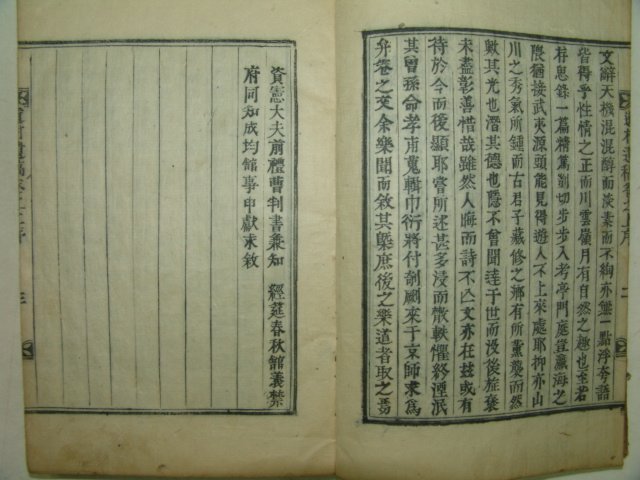 文辭天機混混醇而淡素而不絢亦無一點浮夸語
皆得乎性情之正而川雲嶺月有自然之趣也至若
存思錄一篇精篤剴切步步入考亭門庭豈瀛海之
隈猶接武夷源頭能見得遊人不上來處耶抑亦山
川之秀氣所鍾而古君子藏修之鄕有所薰襲而然
歟其光也潛其德也隱不曾聞達于世而沒後旌褒
未盡彰善惜哉雖然人晦而詩不亾文亦在玆或有
待於今而後顯耶嘗所述甚多浸而散軼懼終湮泯
其曾孫命孝甫蒐輯巾衍將付剞劂來于京師求爲
弁卷之文余樂聞而敘其槩庶後之樂道者取之焉
資憲大夫前禮曹判書兼知　經筵春秋館義禁
府同知成均館事申獻求敘
三
二